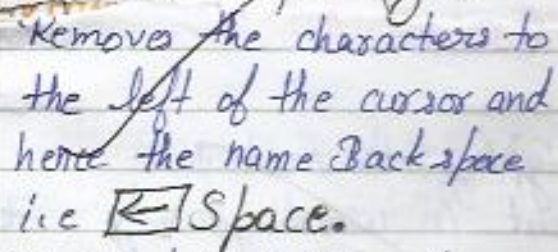 Removes the characters to
the left of the cursor and
hence the name Backspace
i.e ← Space.